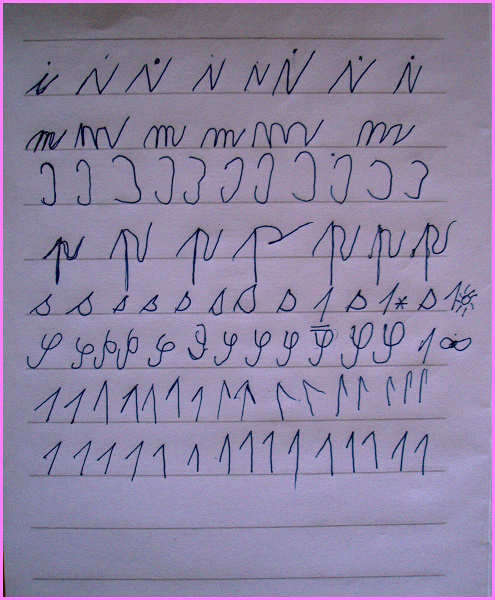 i i i i i i i i
m m m m m m
p p p p p p p
s s s s s s s s s 1 s 1* s 1
φ φ φ φ φ φ φ φ φ φ φ φ 1 ∞
1 1 1 1 1 1 1 1 1 1 1 1 1 1 1 1
1 1 1 1 1 1 1 1 1 1 1 1 1 1 1